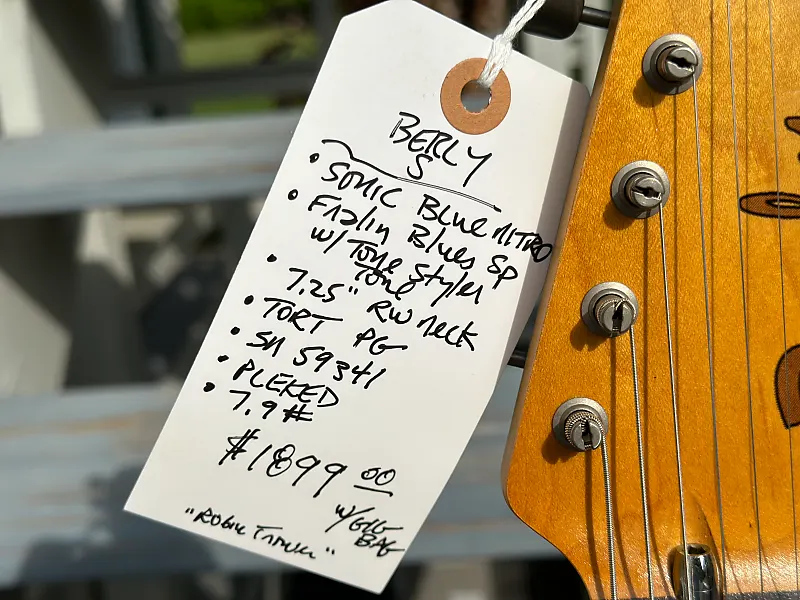 BERLY
S
• SONIC Blue NITRO
• Fralin Blues SP
w/ Tone Styler
Tone
• 7.25" RW neck
• TORT PG
• SN 59341
• PLEKED
• 7.9#
$1899 00
w/GIG
BAG
"ROBIN Trower"